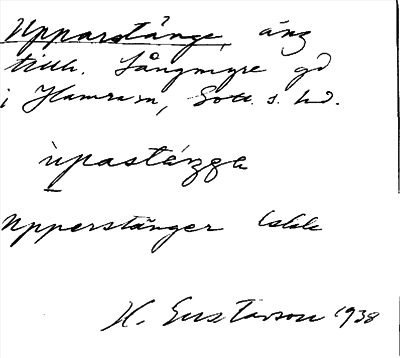 Upparstänge, äng
tillh. Långmyre gd
i Hamra sn, Gotl. s. hd.
ùpastánga
Upperstänger
H. Gustavson 1938